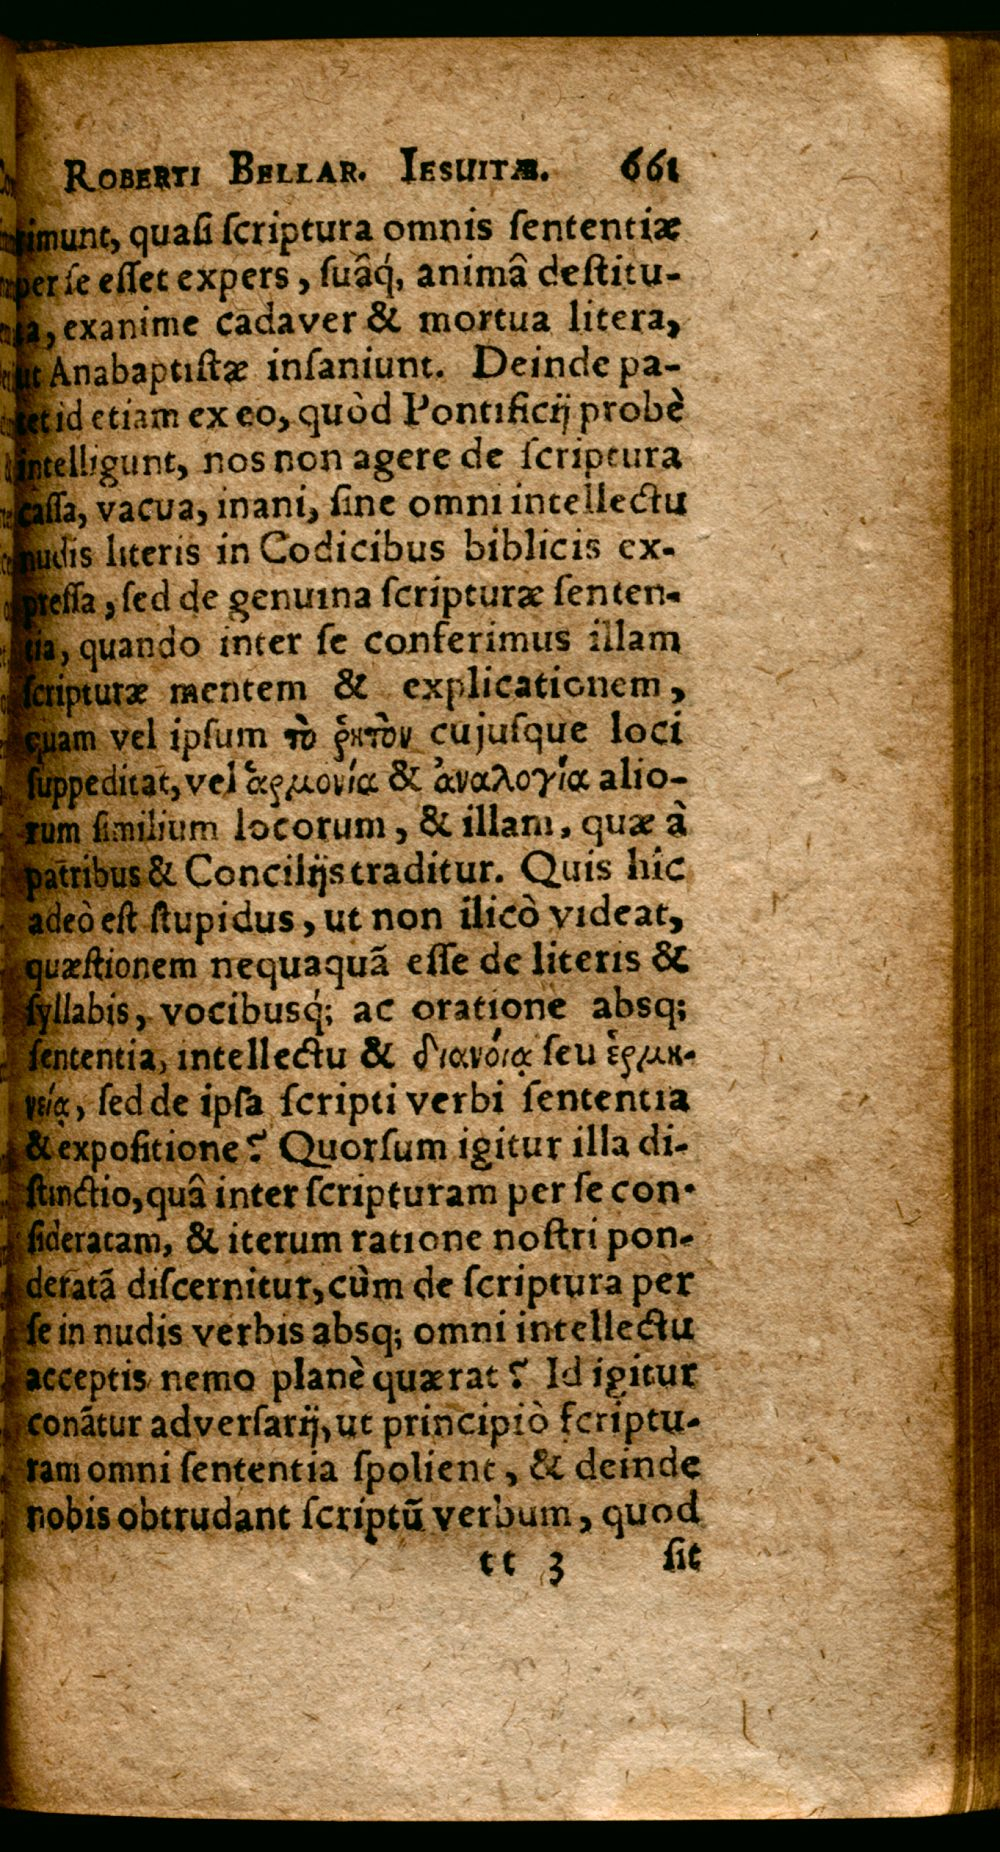 ROBERTI BELLAR. IESUITÆ. 661
rimunt, quaſi ſcriptura omnis ſententiæ
per ſe eſſet expers, ſuâq́, animâ deſtitu-
ta, exanime cadaver & mortua litera,
ut Anabaptiſtæ inſaniunt. Deinde pa-
tet id etiam ex eo, quòd Pontificij probè
intelligunt, nos non agere de ſcriptura
caſſa, vacua, inani, ſine omni intellectu
nudis literis in Codicibus biblicis ex-
preſſa, ſed de genuina ſcripturæ ſenten-
tia, quando inter ſe conferimus illam
ſcripturæ mentem & explicationem,
quam vel ipſum τὸ ῥητὸν cujuſque loci
ſuppeditat, vel ἁρμονία & ἀναλογία alio-
rum ſimilium locorum, & illam, quæ à
patribus & Concilijs traditur. Quis hîc
adeò eſt ſtupidus, ut non ilicò videat,
quæſtionem nequaquã eſſe de literis &
ſyllabis, vocibusq́; ac oratione absq;
ſententia, intellectu & διανοίᾳ ſeu ἑρμη-
νείᾳ, ſed de ipſa ſcripti verbi ſententia
& expoſitione? Quorſum igitur illa di-
ſtinctio, quâ inter ſcripturam per ſe con-
ſideratam, & iterum ratione noſtri pon-
deratã diſcernitur, cùm de ſcriptura per
ſe in nudis verbis absq; omni intellectu
acceptis nemo planè quærat? Id igitur
conãtur adverſarij, ut principiò ſcriptu-
ram omni ſententia ſpolient, & deinde
nobis obtrudant ſcriptũ verbum, quod
tt 3 ſit